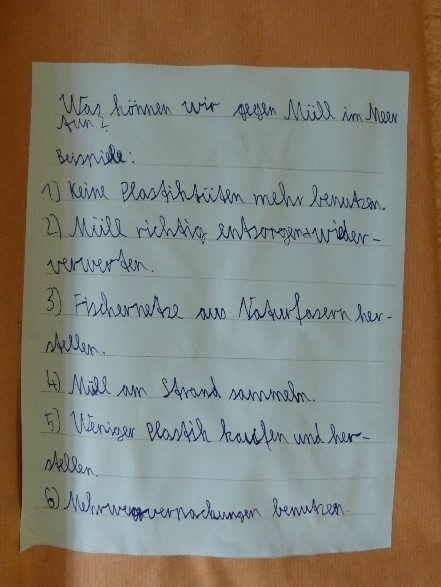 Was können wir gegen Müll im Meer
tun?
Beispiele:
1) Keine Plastiktüten mehr benutzen.
2) Müll richtig entsorgen + wider-
verwerten.
3) Fischernetze aus Naturfasern her-
stellen.
4) Müll am Strand sammeln.
5) Weniger Plastik kaufen und her-
stellen.
6) Mehrwegverpackungen benutzen.